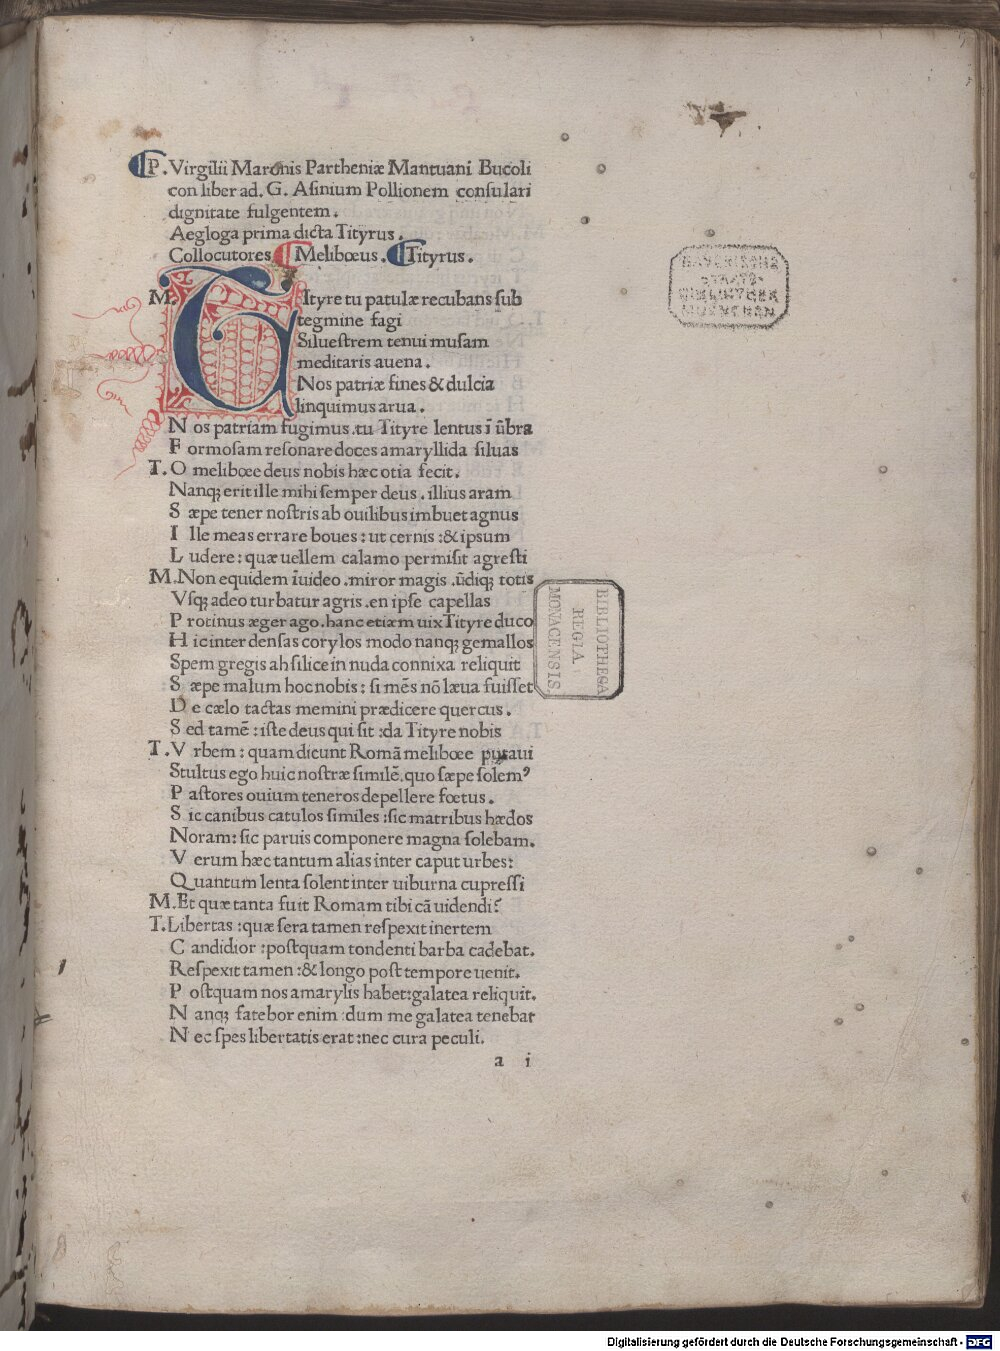 P. Virgilii Maronis Partheniæ Mantuani Bucoli
con liber ad. G. Asinium Pollionem consulari
dignitate fulgentem.
Aegloga prima dicta Tityrus.
Collocutores Melibœus. Tityrus.
M. TItyre tu patulæ recubans sub
tegmine fagi
Siluestrem tenui musam
meditaris auena.
Nos patriæ fines & dulcia
linquimus arua.
N os patriam fugimus .tu Tityre lentus ī ūbra
F ormosam resonare doces amaryllida siluas
T. O melibœe deus nobis hæc otia fecit.
Nanqꝫ erit ille mihi semper deus . illius aram
S æpe tener nostris ab ouilibus imbuet agnus
I lle meas errare boues : ut cernis :& ipsum
L udere : quæ uellem calamo permisit agresti
M. Non equidem īuideo .miror magis .ūdiqꝫ totis
Vsqꝫ adeo turbatur agris .en ipse capellas
P rotinus æger ago. hanc etiam uix Tityre duco
H ic inter densas corylos modo nanqꝫ gemallos
Spem gregis ah silice in nuda connixa reliquit
S æpe malum hoc nobis : si mēs nō læua fuisset
D e cælo tactas memini prædicere quercus.
S ed tamē : iste deus qui sit :da Tityre nobis
T. V rbem : quam dicunt Romā melibœe putaui
Stultus ego huic nostræ similē. quo sæpe solemꝰ
P astores ouium teneros depellere fœtus.
S ic canibus catulos similes :sic matribus hædos
Noram: sic paruis componere magna solebam.
V erum hæc tantum alias inter caput urbes:
Quantum lenta solent inter uiburna cupressi
M. Et quæ tanta fuit Romam tibi cā uidendi?
T. Libertas :quæ sera tamen respexit inertem
C andidior :postquam tondenti barba cadebat.
Respexit tamen :& longo post tempore uenit.
P ostquam nos amarylis habet:galatea reliquit.
N anqꝫ fatebor enim :dum me galatea tenebat
N ec spes libertatis erat :nec cura peculi.
a i
BAYERISCHE
STAATS-
BIBLIOTHEK
MUENCHEN
BIBLIOTHECA
REGIA
MONACENSIS
Digitalisierung gefördert durch die Deutsche Forschungsgemeinschaft - DFG